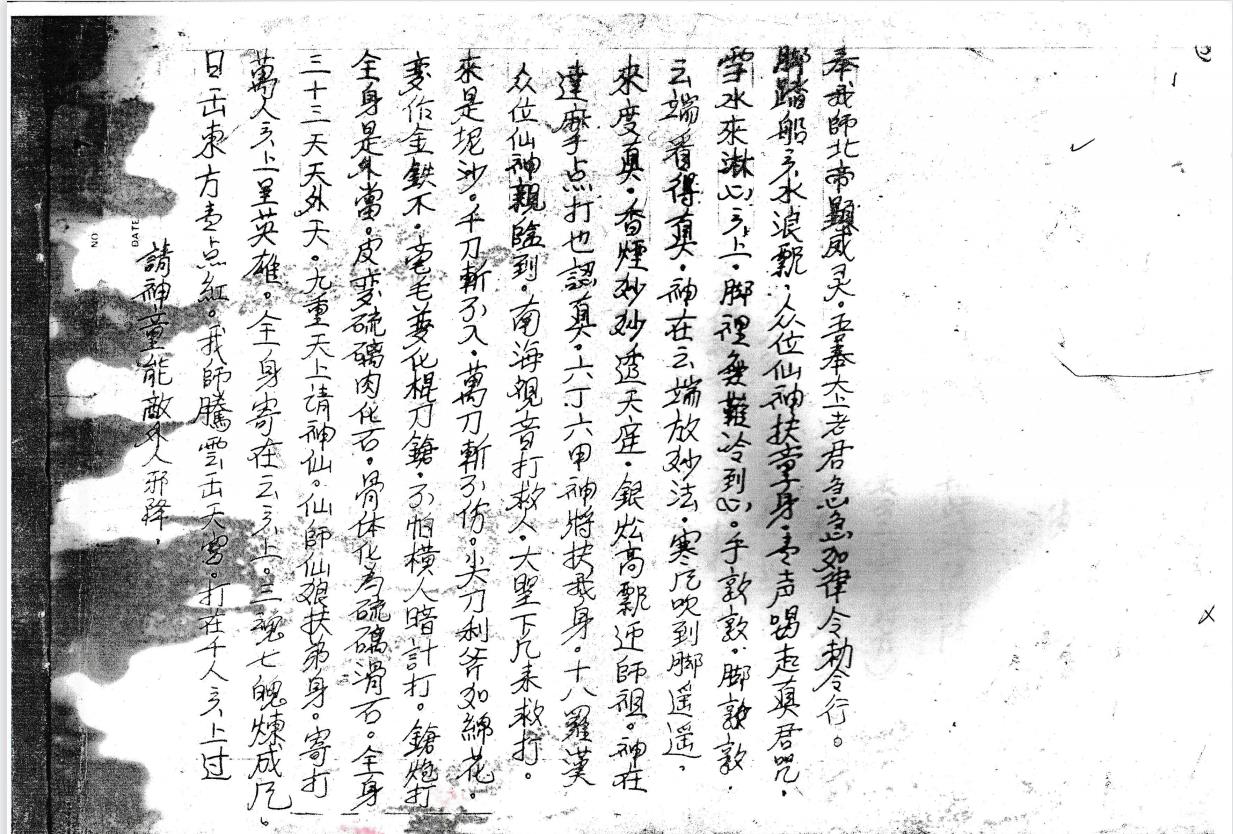 NO
DATE
請神童能敵外人邪降，
日出東方壹点紅。我師騰雲出天宮。打在千人头上过
萬人头上呈英雄。全身寄在云头上。三魂七魄煉成凡。
三十三天天外天。九重天上請神仙。仙師仙娘扶弟身。寄打
全身是外當。皮变硫磺肉化石。骨体化為硫磺滑石。全身
变作金鉄不。毫毛萎化棍刀鎗。不怕横人暗計打。鎗炮打
來是坭沙。千刀斬不入。萬刀斬不伤。尖刀利斧如綿花。
众位仙神親臨到。南海覌音打救人。大聖下凡来救打。
達摩点打也認真。六丁六甲神将扶我身。十八羅漢
來度真。香煙妙妙透天庭。銀炉高飄迊師祖。神在
云端看得真。神在云端放妙法。寒凡吹到脚遥遥，
雪水來淋心头上。脚裡毎難冷到心。手敦敦。脚敦敦。
脚踏船头水浪飄，众位仙神扶童子身。壹声喝起真君咒，
奉我師北帝顯威灵。吾奉太上老君急急如律令勅令行。